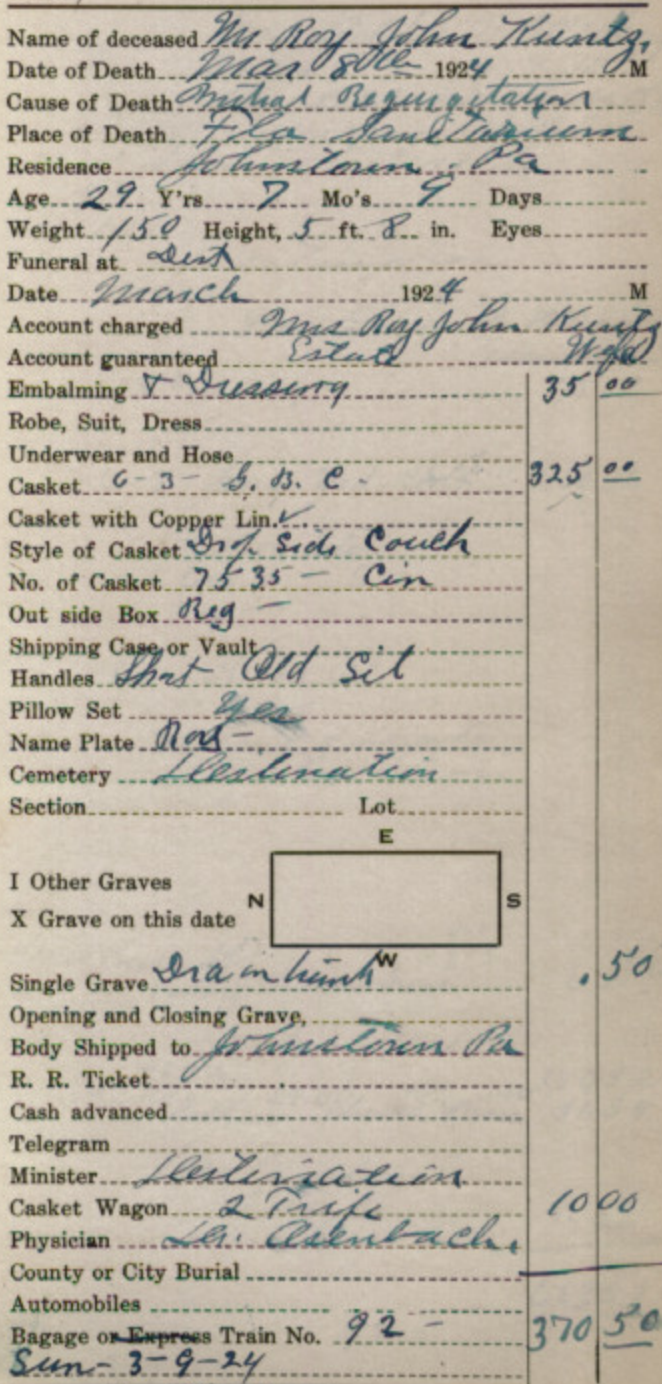 Name of deceased Mr Roy John Kuntz,
Date of Death Mar 8th 1924 M
Cause of Death Mitral Regurgitation
Place of Death Fla Sanitarium
Residence Johnstown - Pa
Age 29 Y'rs 7 Mo's 9 Days
Weight 150 Height, 5 ft. 8 in. Eyes
Funeral at Dest
Date March 1924 M
Account charged Mrs Roy John Kuntz
Account guaranteed Estate Wife
Embalming & Dressing 35 00
Robe, Suit, Dress
Underwear and Hose
Casket 6-3- S. B. C - 325 00
Casket with Copper Lin. ✓
Style of Casket Drop Side Couch
No. of Casket 7535 - Cin
Out side Box Reg -
Shipping Case or Vault
Handles Short Old Sil
Pillow Set Yes
Name Plate
Cemetery Destination
Section Lot
E
I Other Graves
N S
X Grave on this date
W
Single Grave .50
Opening and Closing Grave,
Body Shipped to Johnstown Pa
R. R. Ticket
Cash advanced
Telegram
Minister Destination
Casket Wagon 2 Trips 10 00
Physician Dr.
County or City Burial
Automobiles
Bagage or Express Train No. 92 - 370 50
Sun - 3-9-24